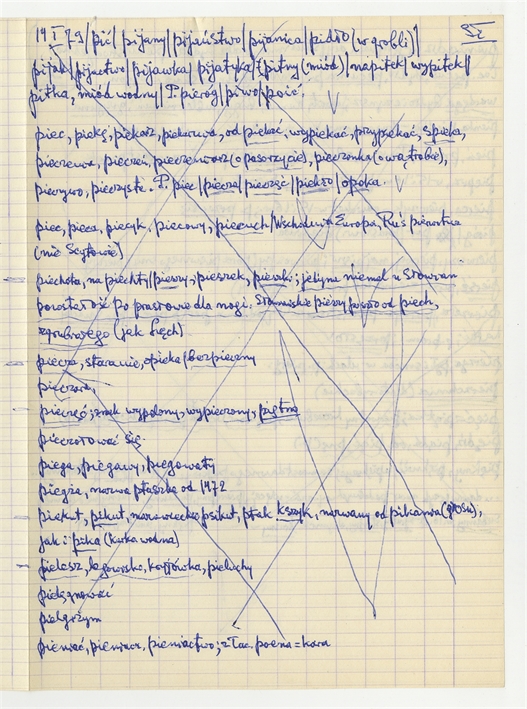 19 I 79 / pić / pijany / pijaństwo / pijanica / pidło (w grobli) /
pijak / pijactwo / pijawka / pijatyka / pitny (miód) / napitek / wypitek /
pitka, miód wodny / P. pieróg / piwo / poić
piec, piekę, piekarz, piekarnia, od piekać, wypiekać, przypiekać, spieka,
pieczenia, pieczeń, pieczeniarz (o pasorzycie), pieczonka (o wątrobie),
pieczywo, pieczyste. P. piec / pieczeń / pieczęć / piekło / opoka.
piec, pieca, piecyk, piecowy, piecuch / Wschodnia Europa, Ruś pierwotna
(nie Scytowie)
piechota, na piechty / pieszy, pieszek, pieszki; jedyna niemal u Słowian
pozostałość po prasłowie dla nogi. Słowiańskie pieszy poszło od piech,
zgrubiałego (jak Lech)
piecza, staranie, opieka / bezpieczny
pieczara,
pieczęć; znak wypalony, wypieczony, piętno
pieczętować się.
piega, piegawy, piegowaty
piegża, nazwa ptaszka od 1472
piekut, pikut, mazowieckie psikut, ptak kszyk, nazwany od pikania (głosu),
jak i pika (kurka wodna)
pielesz, legowisko, kryjówka, pieluchy
pielęgnować
pielgrzym
pieniać, pieniacz, pieniactwo; z łac. poena = kara